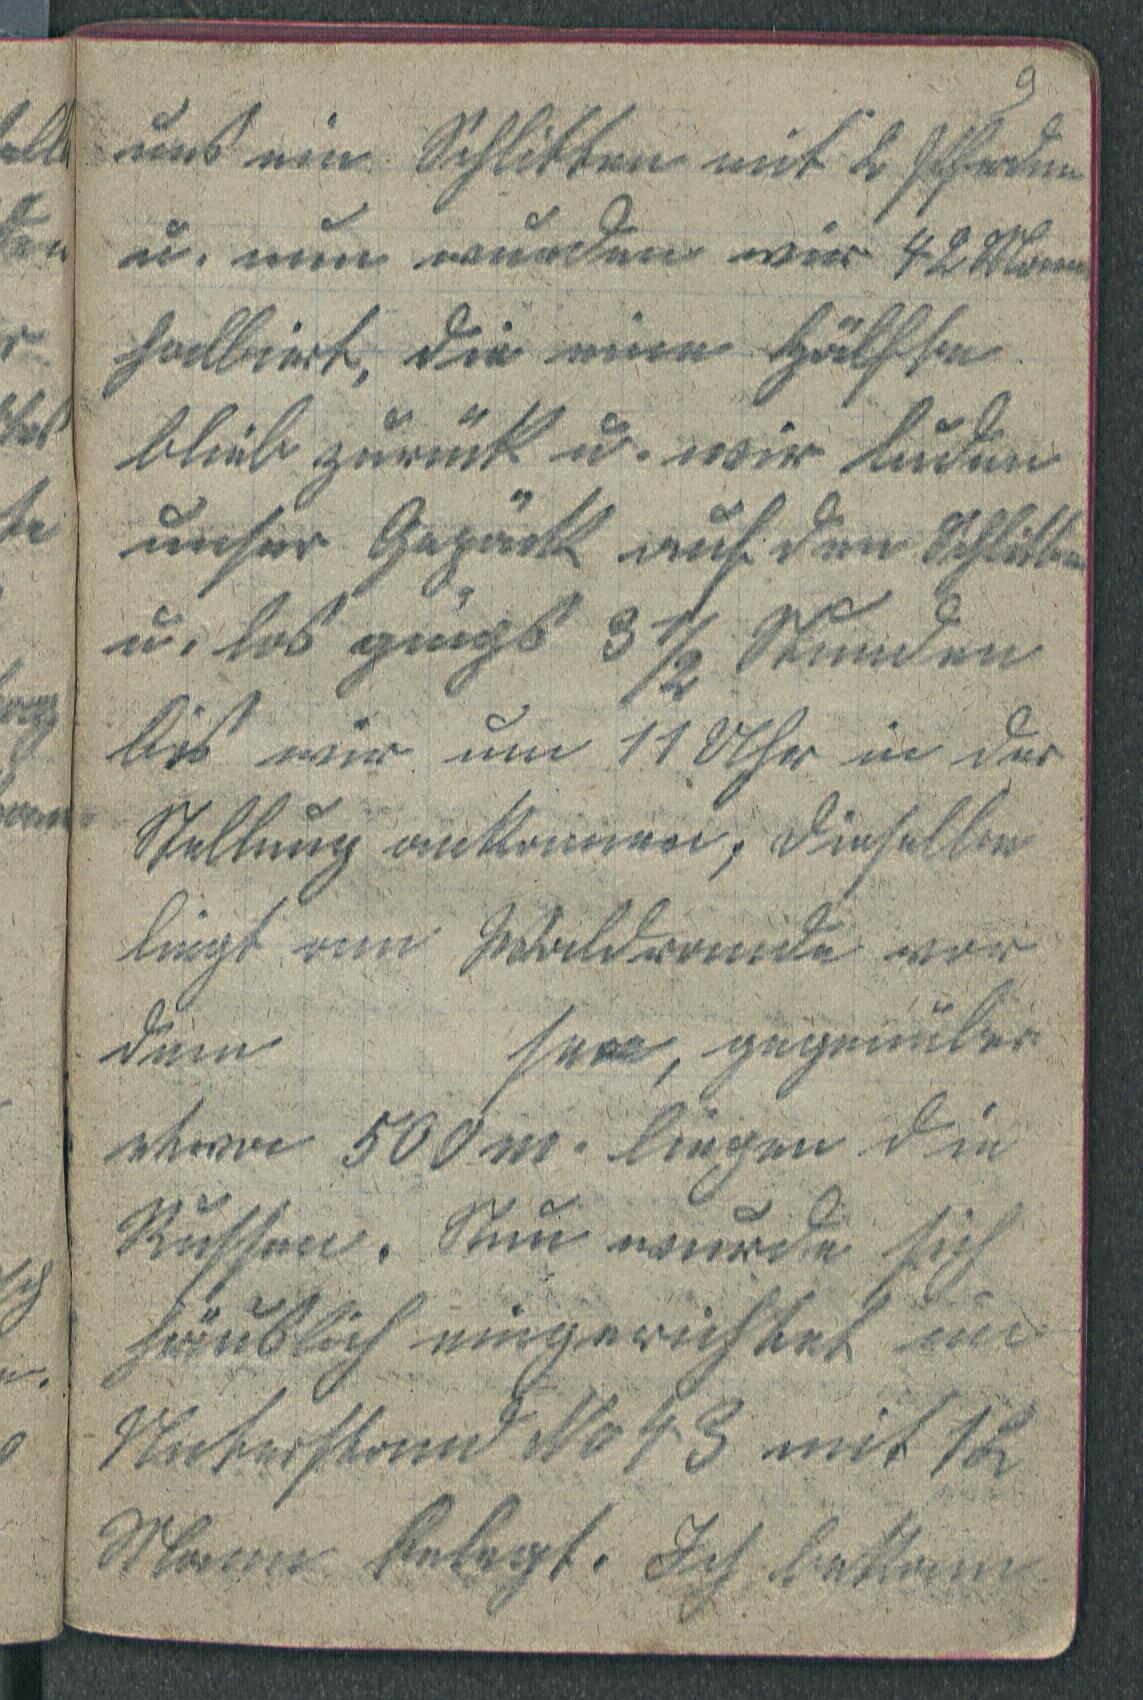 9
uns ein Schlitten mit 2 Pferden
u. nun wurden wir 42 Mann
halbiert, die eine Hälfte
blieb zurück u. wir luden
unser Gepäck auf den Schlitten
u. los gings 3 1/2 Stunden
bis wir um 11 Uhr in der
Stellung ankamen; dieselbe
liegt am Waldrande vor
dem see, gegenüber
etwa 500 m. liegen die
Russen. Nun wurde sich
häuslich eingerichtet im
Unterstand No 43 mit 12
Mann belegt. Ich bekam